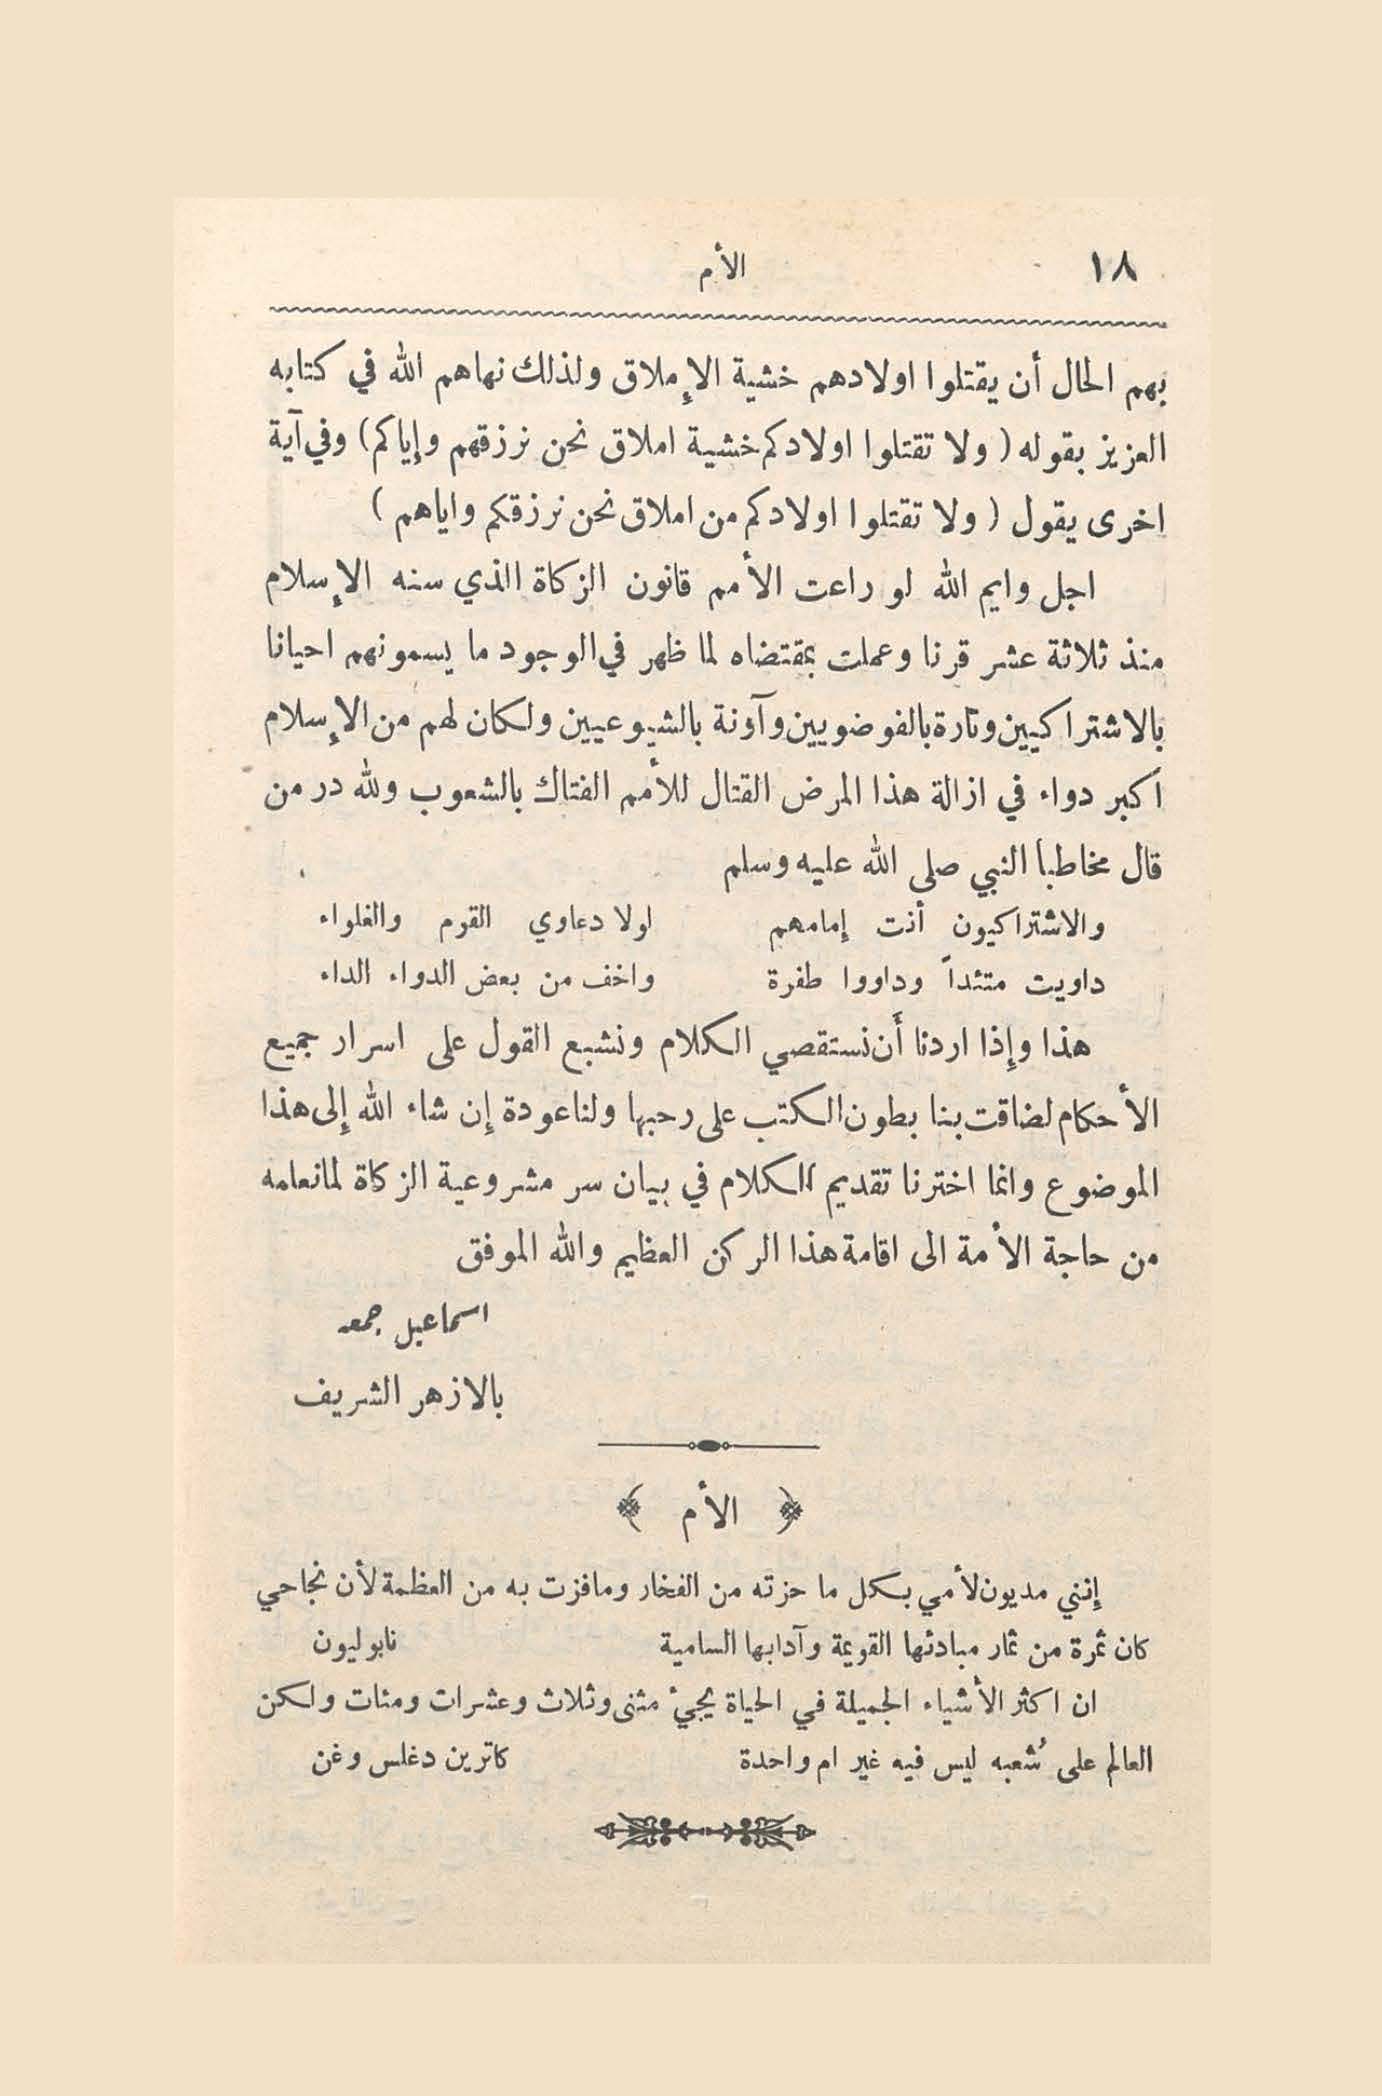 ١٨
الأم
بهم الحال أن يقتلوا اولادهم خشية الإملاق ولذلك نهاهم الله في كتابه
العزيز بقوله ( ولا تقتلوا اولادكم خشية املاق نحن نرزقهم وإياكم ) وفي آية
اخرى يقول ( ولا تقتلوا اولادكم من املاق نحن نرزقكم واياهم )
اجل وايم الله لو راعت الأمم قانون الزكاة الذي سنه الإسلام
منذ ثلاثة عشر قرنا وعملت بمقتضاه لما ظهر في الوجود ما يسمونهم احيانا
بالاشتراكيين وتارة بالفوضويين وآونة بالشيوعيين ولكان لهم من الإسلام
أكبر دواء في ازالة هذا المرض القتال للأمم الفتاك بالشعوب ولله در من
قال مخاطباً النبي صلى الله عليه وسلم
والاشتراكيون أنت إمامهم لولا دعاوي القوم والغلواء
داويت متئداً وداووا طفرة واخف من بعض الدواء الداء
هذا وإذا اردنا أَن نستقصي الكلام ونشبع القول على اسرار جميع
الأحكام لضاقت بنا بطون الكتب على رحبها ولنا عودة إن شاء الله إلى هذا
الموضوع وانما اخترنا تقديم الكلام في بيان سر مشروعية الزكاة لما نعلمه
من حاجة الأمة الى اقامة هذا الركن العظيم والله الموفق
اسماعيل جمعه
بالازهر الشريف
﴿ الأم ﴾
إنني مديون لأمي بكل ما حزته من الفخار وما فزت به من العظمة لأن نجاحي
كان ثمرة من ثمار مبادئها القويمة وآدابها السامية نابوليون
ان اكثر الأشياء الجميلة في الحياة يجيء مثنى وثلاث وعشرات ومئات ولكن
العالم على تُشعبه ليس فيه غير ام واحدة كاترين دغلس وغن